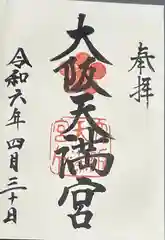 奉拝
大阪天満宮
令和六年四月三十日